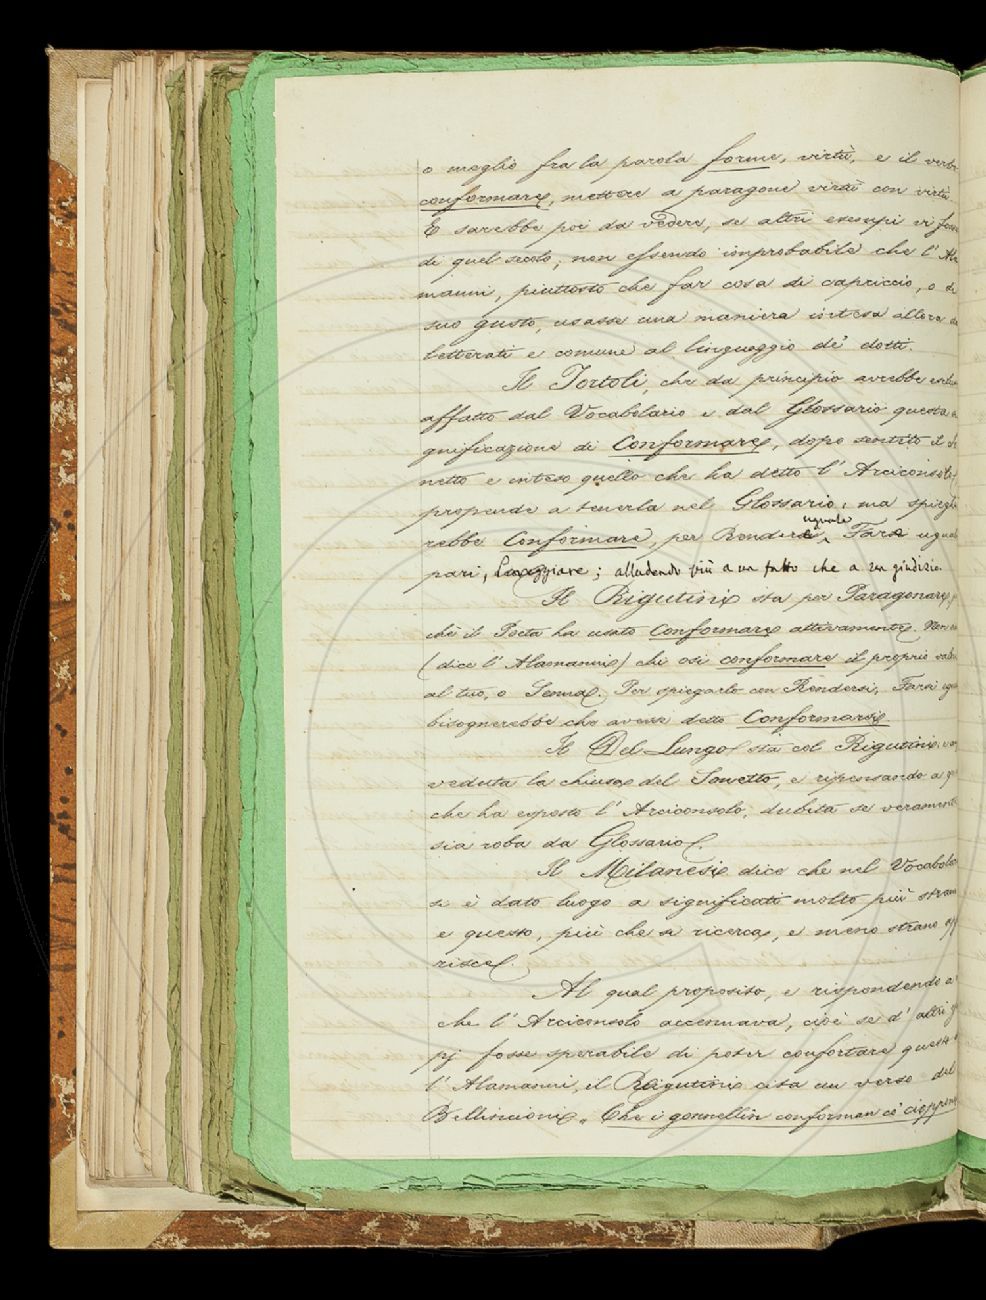 o meglio fra la parola forme, virtù, e il verbo
conformare, mettere a paragone virtù con virtù.
E sarebbe poi da vedere, se altri esempi vi fosse
di quel secolo; non essendo improbabile che l' Ala
manni, piuttosto che far cosa di capriccio, o di
suo gusto, usasse una maniera intesa allora da
letterati e comune al linguaggio de' dotti.
Il Tortoli, che da principio avrebbe
affatto dal Vocabolario e dal Glossario questa
gnificazione di Conformare, dopo sentito il
netto e inteso quello che ha detto l' Arciconsolo,
propende a tenerla nel Glossario; ma spieghe
rebbe Conformare, per Rendere uguale, Fare
pari, Pareggiare; alludendo più a un fatto che a un giudizio.
Il Rigutini sta per Paragonare,
chè il Poeta ha usato Conformare attivamente. Non
(dice l' Alamanni) chi osi conformare il proprio valor
al tuo, o Senna. Per spiegarlo con Rendersi, Farsi
bisognerebbe che avesse detto Conformarsi
Il Del Lungo sta col Rigutini;
veduta la chiusa del Sonetto, e ripensando a
che ha esposto l' Arciconsolo, dubita se veramente
sia roba da Glossario.
Il Milanesi dice che nel Vocabola
si è dato luogo a significati molto più strani
e questo, più che si ricerca, e meno strano
risce.
Al qual proposito, e rispondendo a
che l' Arciconsolo accennava, cioè se d' altri
pj fosse sperabile di poter confortare questo
l' Alamanni, il Rigutini cita un verso del
Bellincioni „ Che i gonnellin conforman co'